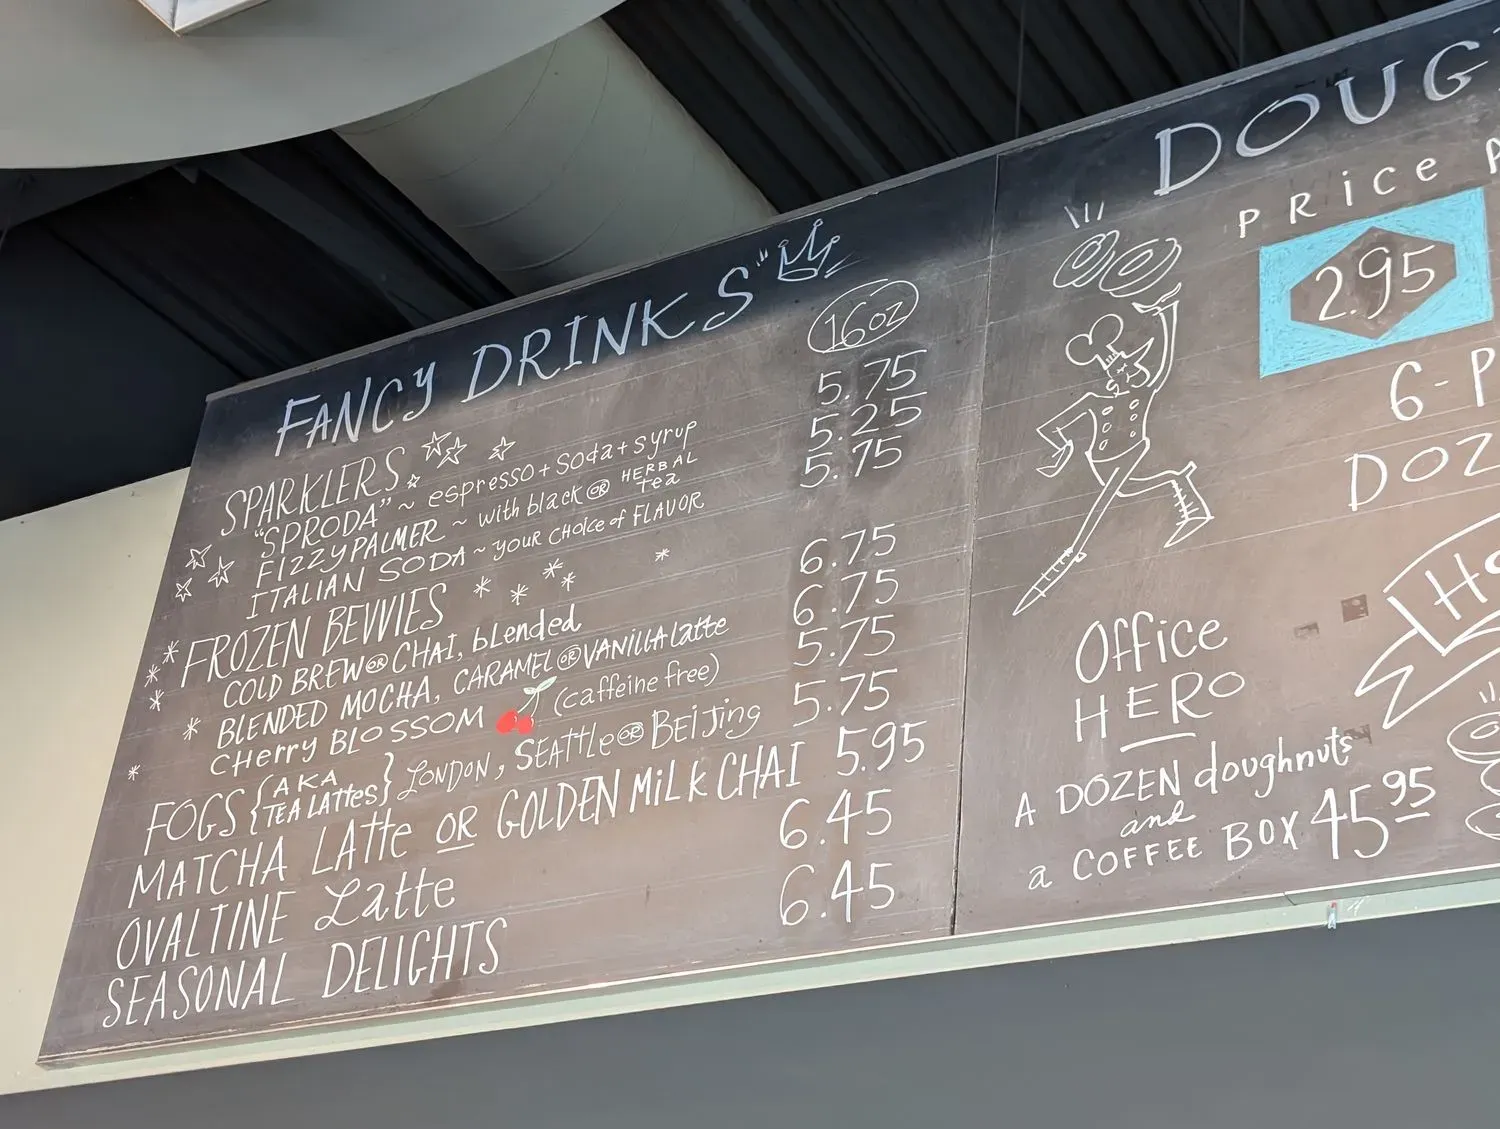 FANCY DRINKS
16oz
SPARKLERS
"SPRODA" ~ espresso + soda + syrup 5.75
FIZZY PALMER ~ with black OR HERBAL tea 5.25
ITALIAN SODA ~ YOUR CHOICE of FLAVOR 5.75
FROZEN BEVVIES
COLD BREW OR CHAI, blended 6.75
BLENDED MOCHA, CARAMEL OR VANILLA latte 6.75
CHerry BLOSSOM (caffeine free) 5.75
FOGS {AKA TEA LAttes} LONDON, SEATTLE OR BEIJing 5.75
MATCHA LAtte OR GOLDEN MiLK CHAI 5.95
OVALTINE Latte 6.45
SEASONAL DELIGHTS 6.45
DOUG
PRice
2.95
6-P
DOZ
Office
HERO
A DOZEN doughnuts
and
a COFFEE BOX 45.95